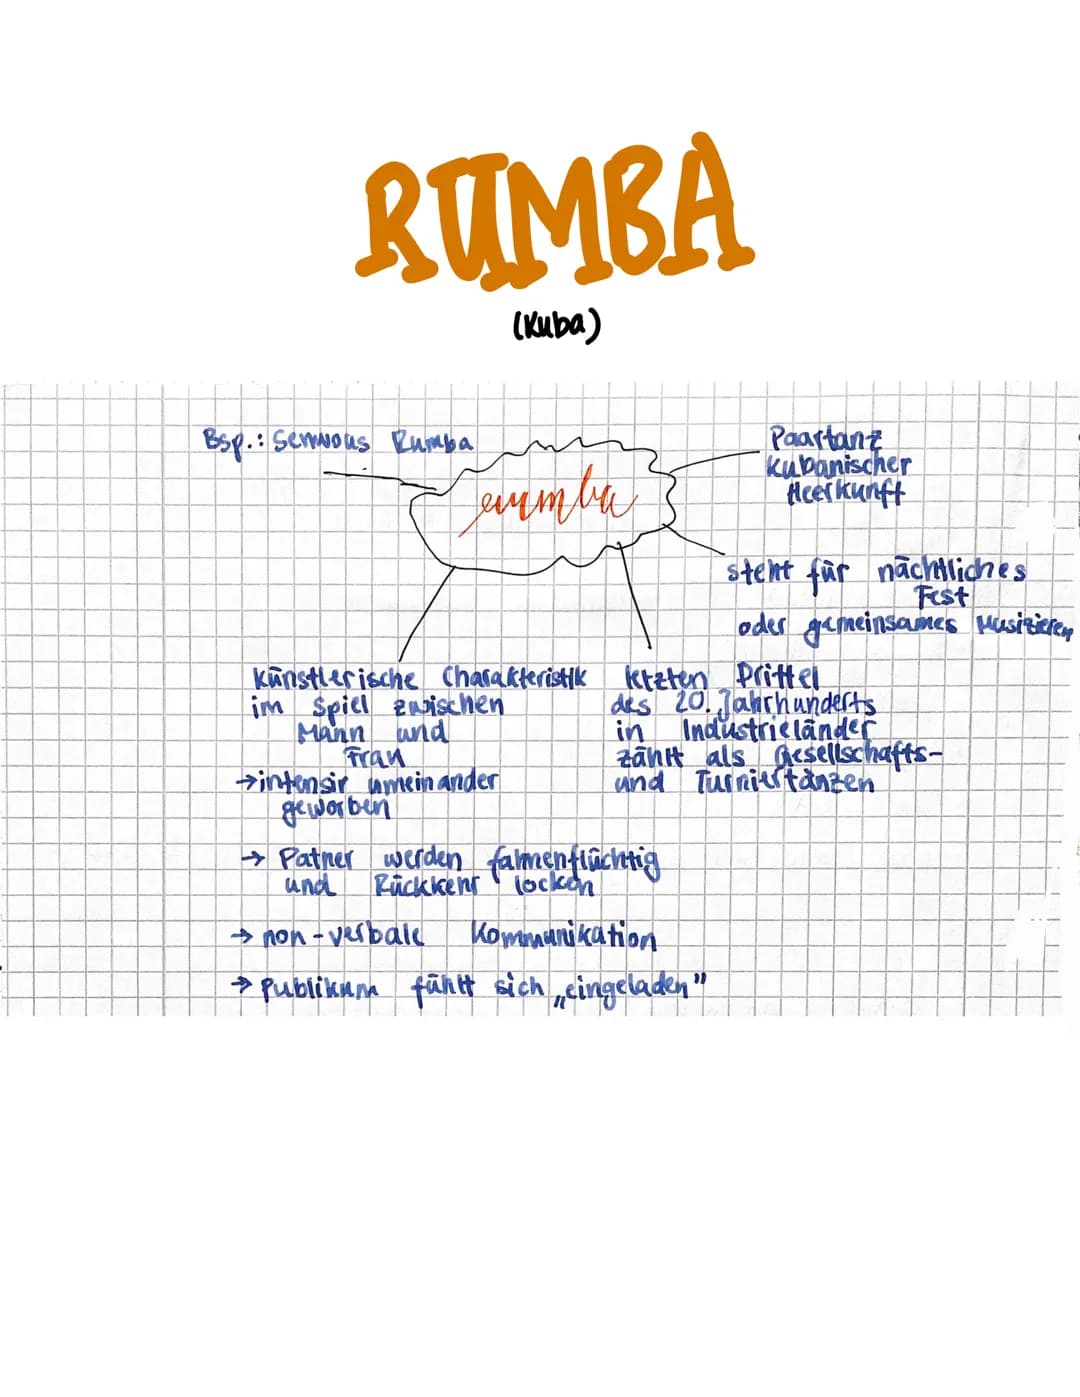 RUMBA
(Kuba)
Bsp.: Sennous Rumba
rumba
Paartanz
kubanischer
Heerkunft
steht für nächtliches
Fest
oder gemeinsames Musizieren
künstlerische Charakteristik
im Spiel zwischen
Mann und
Frau
→ intensiv umeinander
geworben
→ Patner werden fahnenflüchtig
und Rückkehr locken
→ non-verbale Kommunikation
→ Publikum fühlt sich „eingeladen"
letzten Drittel
des 20. Jahrhunderts
in Industrieländer
zählt als Gesellschafts-
und Turniertänzen